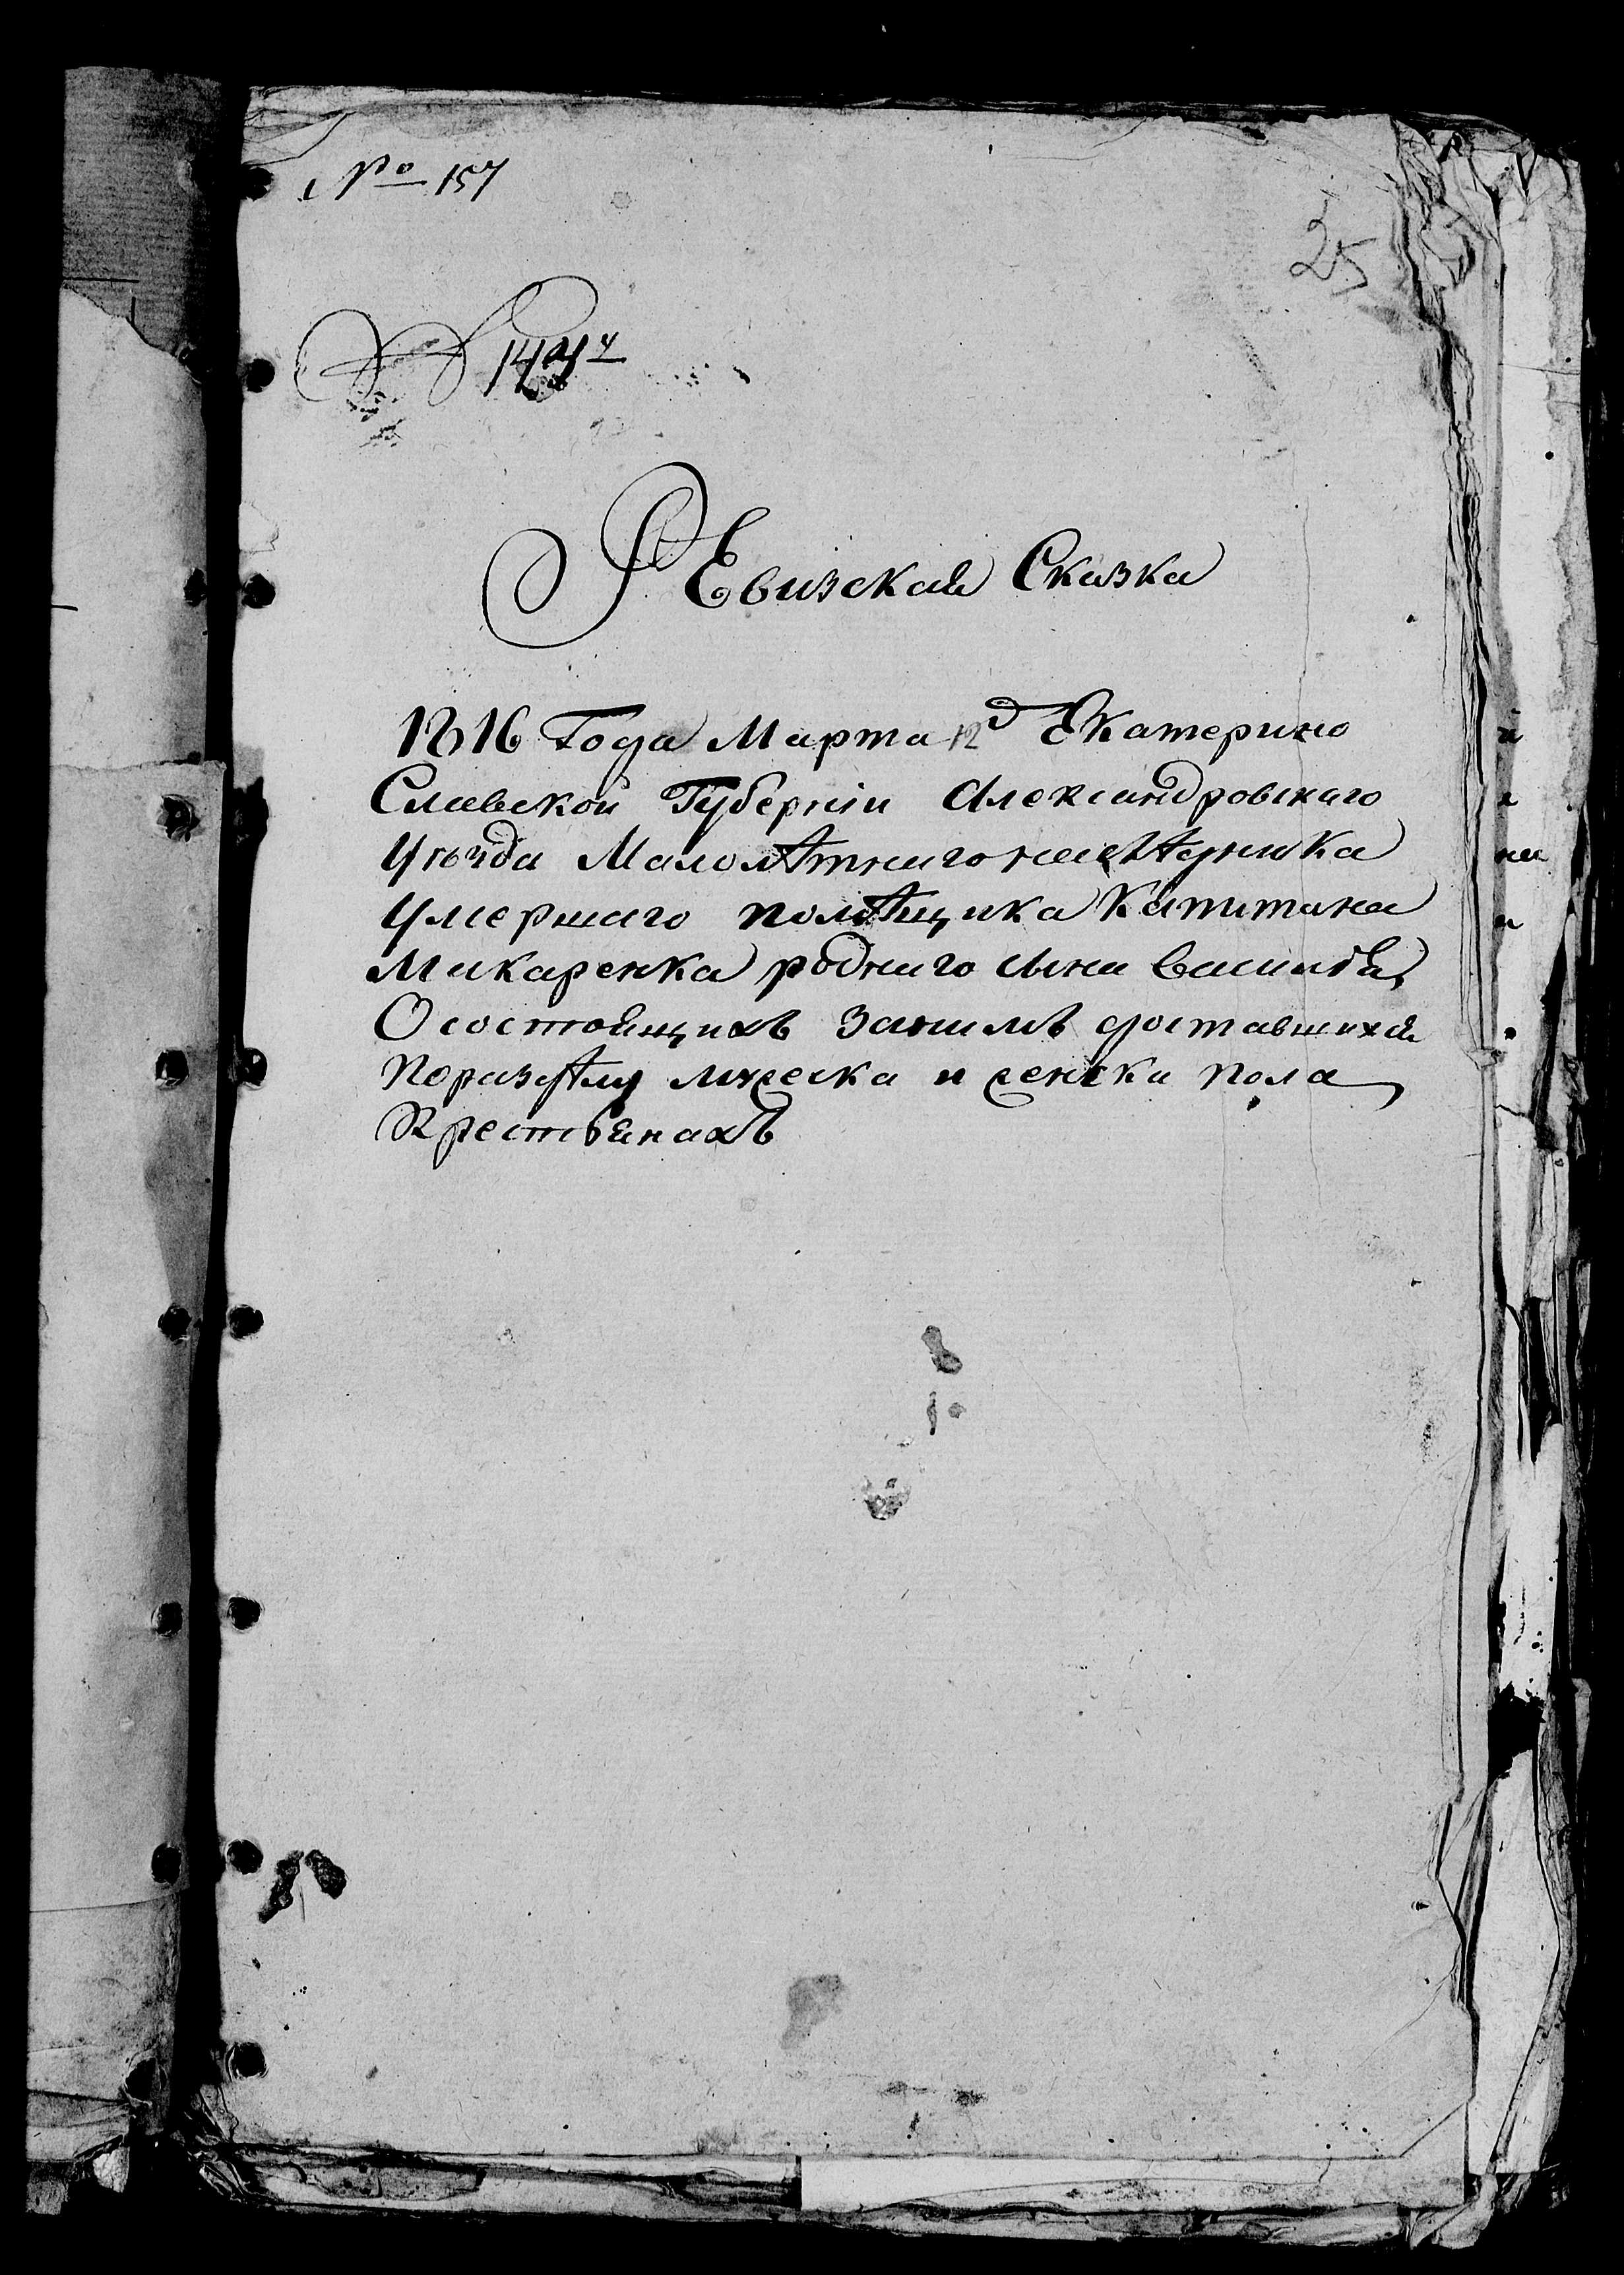 № 157
25
Ревизская Сказка
1816 Года Марта 12 д Екатерино
Славской Губерніи Александровскаго
Уѣзда Малолѣтнаго наслѣдника
Умершаго помѣщика Капитана
Макаренка роднаго сына Василія,
О состоящихъ за нимъ доставшихся
По раздѣлу мужеска и женска пола
Крестьянахъ